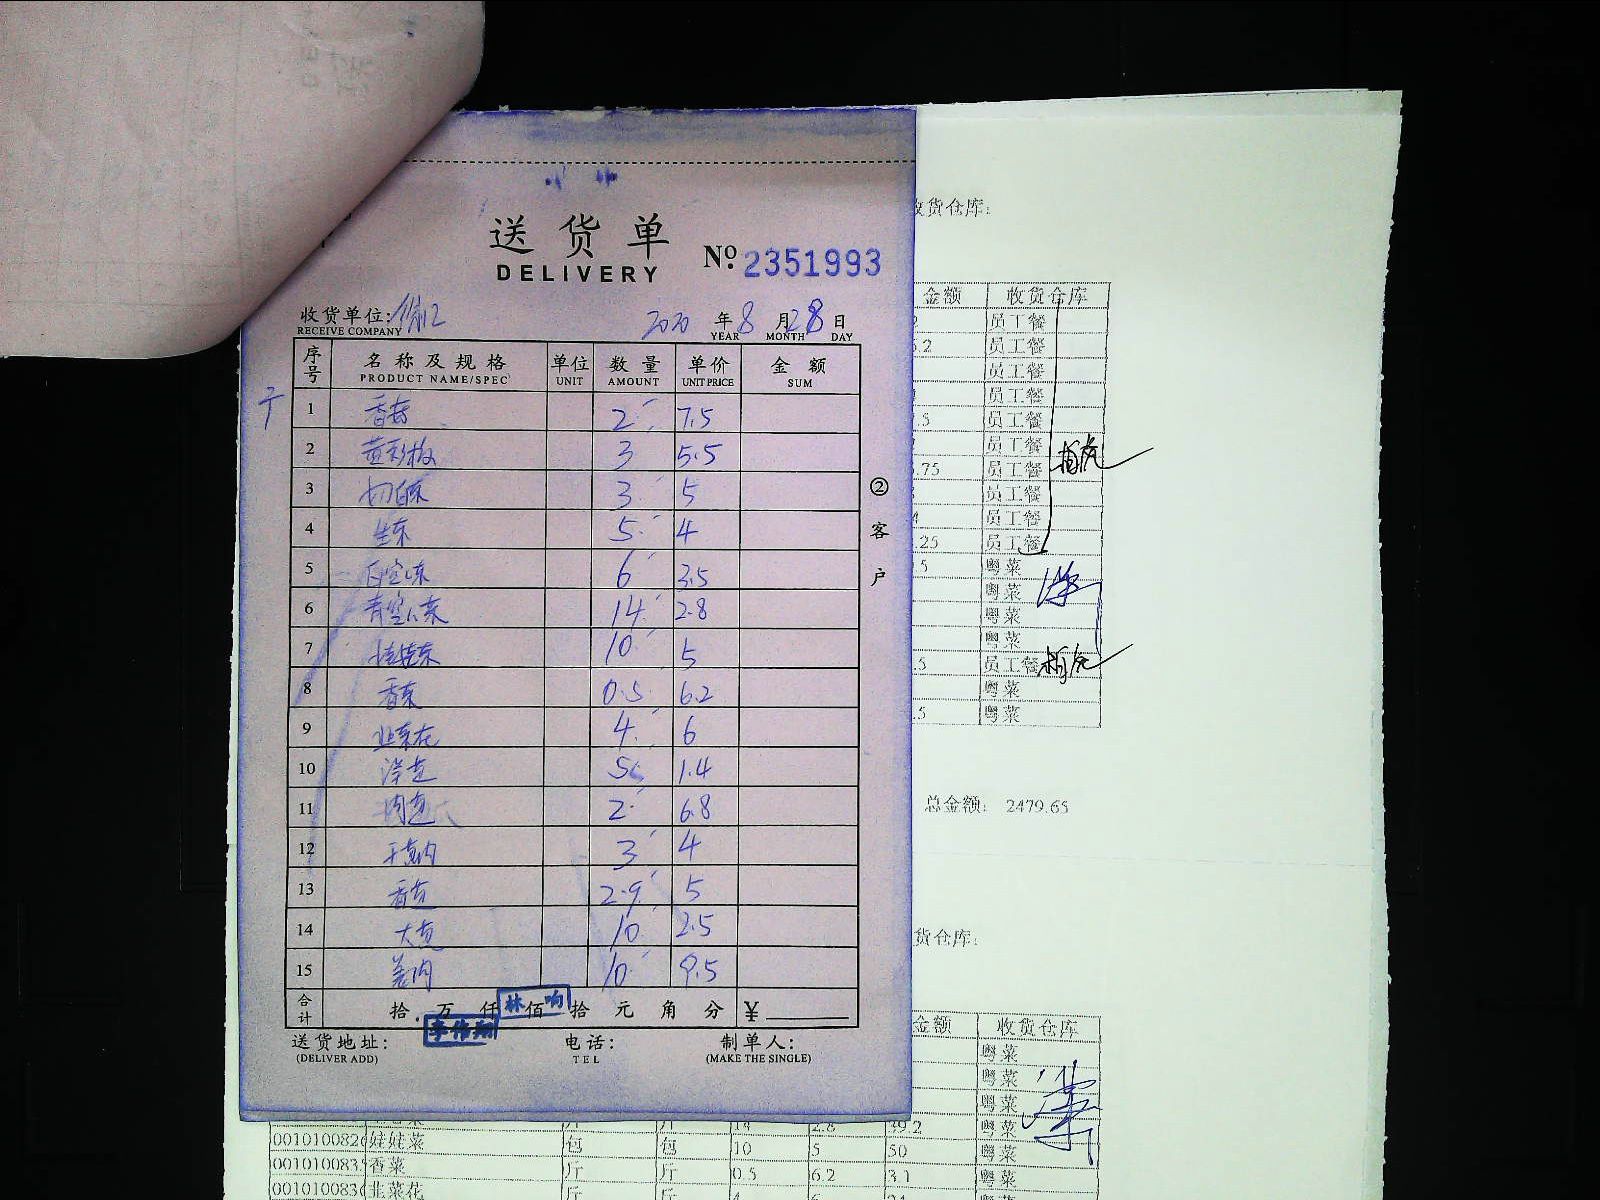 送货单
DELIVERY
№ 2351993
收货单位:
RECEIVE COMPANY
2020 年 8 月 28 日
YEAR MONTH DAY
序号 名称及规格 单位 数量 单价 金额
PRODUCT NAME/SPEC UNIT AMOUNT UNIT PRICE SUM
1 2 7.5
2 黄彩椒 3 5.5
3 3 5
4 生菜 5 4
5 白空心菜 6 3.5
6 青空心菜 14 2.8
7 娃娃菜 10 5
8 香菜 0.5 6.2
9 韭菜花 4 6
10 洋芫 5 1.4
11 2 6.8
12 3 4
13 2.9 5
14 10 2.5
15 10 9.5
合计 拾 万 仟 佰 拾 元 角 分 ¥
林响
李伟翔
送货地址: 电话: 制单人:
(DELIVER ADD) TEL (MAKE THE SINGLE)
②客户
货仓库:
金额 收货仓库
员工餐
.2 员工餐
员工餐
员工餐
.5 员工餐
员工餐
.75 员工餐
员工餐
员工餐
.25 员工餐
.5 粤菜
粤菜
粤菜
粤菜
.5 员工餐
粤菜
.5 粤菜
总金额: 2479.65
货仓库:
金额 收货仓库
粤菜
粤菜
粤菜
斤 斤 14 2.8 39.2 粤菜
001010082 娃娃菜 包 包 10 5 50 粤菜
001010083 香菜 斤 斤 0.5 6.2 3.1 粤菜
001010083 韭菜花 斤 斤 4 6 24 粤菜